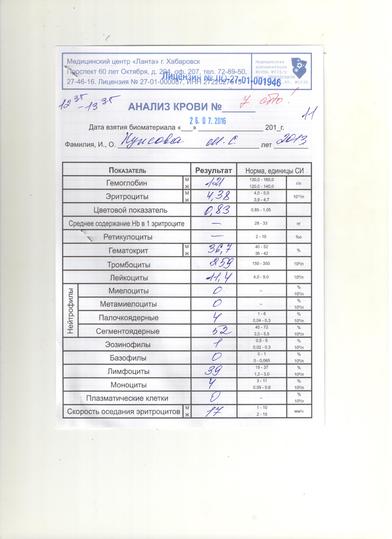 Медицинский центр «Ланта» г. Хабаровск
Проспект 60 лет Октября, д. 204, оф. 207, тел. 72-89-50,
27-46-16. Лицензия № 27-01-000087, ИНН
Лицензия № ЛО-27-01-001946
12 35 - 13 35
АНАЛИЗ КРОВИ №
26 07 2016
Дата взятия биоматериала «__» 201_г.
Фамилия, И., О. М. С лет 2013
Показатель Результат Норма, единицы СИ
Гемоглобин М Ж 121 130,0 - 160,0 120,0 - 140,0 г/л
Эритроциты М Ж 4,38 4,0 - 5,0 3,9 - 4,7 10¹²/л
Цветовой показатель 0,83 0,85 - 1,05
Среднее содержание Hb в 1 эритроците — 28 - 33 пг
Ретикулоциты — 2 - 10 ‰
Гематокрит М Ж 36,7 40 - 52 36 - 42 %
Тромбоциты 259 150 - 350 10⁹/л
Лейкоциты 11,4 4,0 - 9,0 10⁹/л
Нейтрофилы
Миелоциты 0 – % 10⁹/л
Метамиелоциты 0 – % 10⁹/л
Палочкоядерные 4 1 - 6 0,04 - 0,3 % 10⁹/л
Сегментоядерные 52 40 - 72 2,0 - 5,5 % 10⁹/л
Эозинофилы 1 0,5 - 5 0,02 - 0,3 % 10⁹/л
Базофилы 0 0 - 1 0 - 0,065 % 10⁹/л
Лимфоциты 39 19 - 37 1,2 - 3,0 % 10⁹/л
Моноциты 4 3 - 11 0,09 - 0,6 % 10⁹/л
Плазматические клетки 0 – % 10⁹/л
Скорость оседания эритроцитов М Ж 17 1 - 10 2 - 15 мм/ч